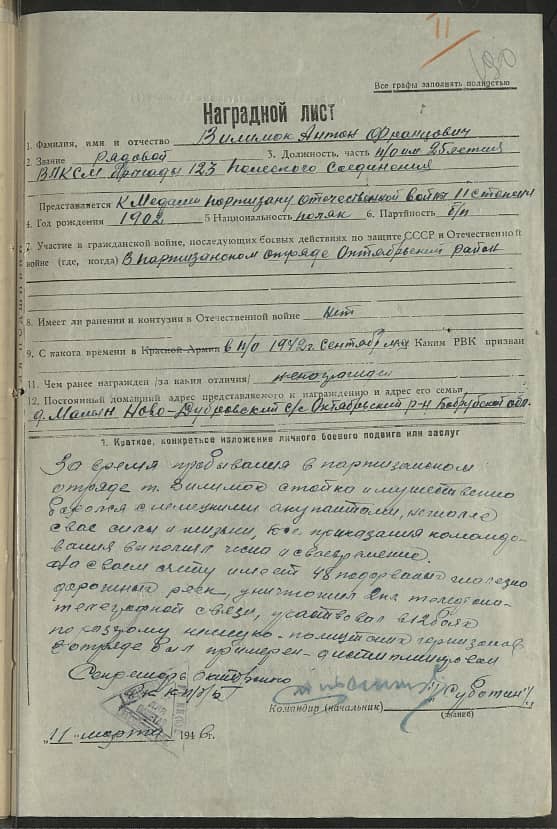 11
190
Все графы заполнять полностью
Наградной лист
1. Фамилия, имя и отчество Вилимок Антон Францович
2. Звание Рядовой 3. Должность, часть п/о им 25 летия
ВЛКСМ бригады 123 Полесского Соединения
Представляется К Медали партизану отечественной войны II степени
4. Год рождения 1902 5 Национальность поляк 6. Партйность б/п
7. Участие в гражданской войне, последующих боевых действиях по защите СССР и Отечественной
войне (где, когда) В партизанском отряде Октябрьский район
8. Имеет ли ранении и контузии в Отечественной войне нет
9. С какога времени в Красной Армии в п/о 1942 г. сентябрь м-ц Каким РВК призван
11. Чем ранее награжден /за какия отличия/
12. Постоянный домашний адрес представляемого к награждению и адрес его семьи
д. Ново-Дубровский с/с Октябрьский р-н Бобруйской обл.
1. Краткое, конкретьсе изложение личного боевого подвига или заслуг
За время пребывания в партизанском
отряде т. Вилимок стойко и мужественно
боролся с немецкими окупантами, не жалея
свое силы и жизни, все приказания командо-
вания выполнял и своевременно.
На своем счету имеет 48 подорванных железно
дорожных рельс, уничтожил 2 км телефонно-
телеграфной связи, участвовал в 12 боях
по разгрому немецко-полицейских гарнизонов
В отряде был примерен - дисциплинирован
Секретарь Октябрьского
РК КП(б)Б /Субботин/
Командир (начальник)
"11" марта 1946 г.